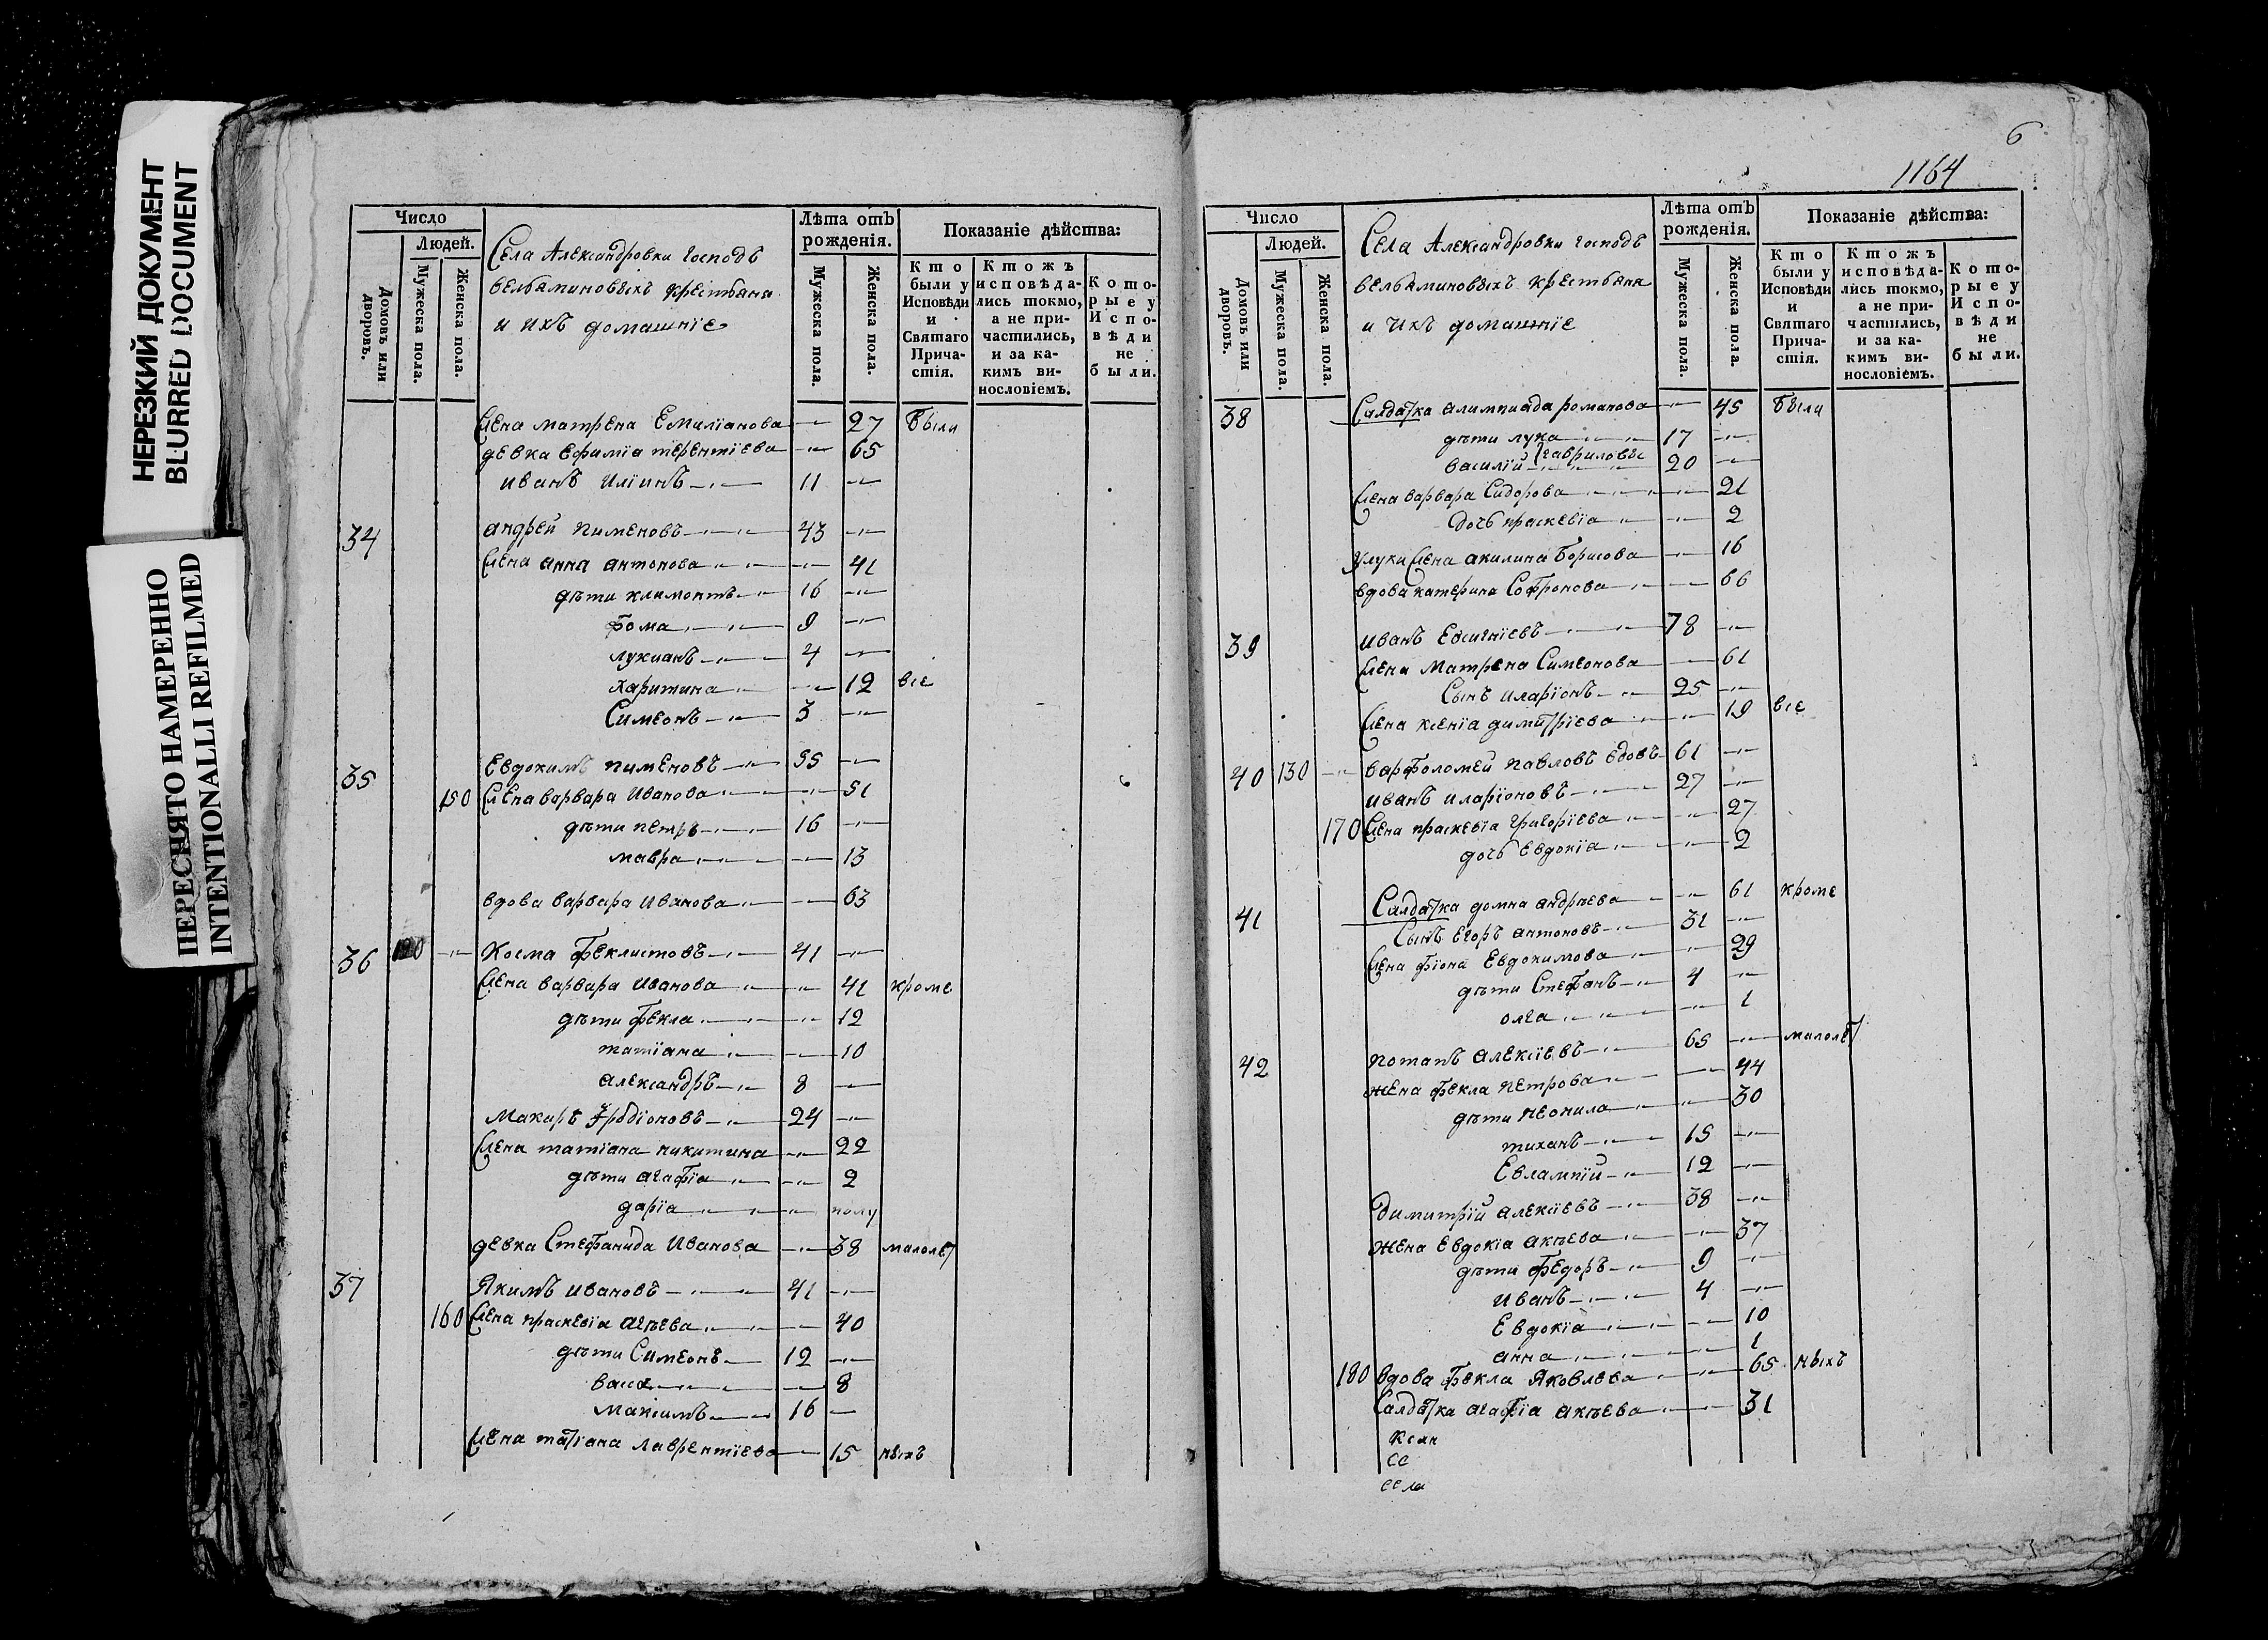 НЕРЕЗКИЙ ДОКУМЕНТ
BLURRED DOCUMENT
ПЕРЕСНЯТО НАМЕРЕННО
INTENTIONALLI REFILMED
Число
Людей.
Домовъ или дворовъ.
Мужеска пола.
Женска пола.
Села Александровки господъ
вельяминовыхъ крестьяна
и ихъ домашніе
Лѣта отъ рожденія.
Мужеска пола.
Женска пола.
Показаніе дѣйства:
Кто были у Исповѣди и Святаго Причастія.
Ктожъ исповѣдались токмо, а не причастились, и за какимъ винословіемъ.
Которые у Исповѣди не были.
Жена матрена Емиліанова 27 были
девка Ефиміа терентіева 65
иванъ иліинъ 11
34 андрей пименовъ 43
Жена анна антонова 41
дѣти климонтъ 16
фома 9
лукианъ 4
харитина 12 все
Симеонъ 3
35 Евдокимъ пименовъ 55
150 Жена варвара Иванова 51
дѣти петръ 16
мавра 13
вдова варвара Иванова 63
36 120 Косма феклистовъ 41
Жена варвара Иванова 41 кроме
дѣти фекла 12
татіана 10
александръ 8
Макаръ Іродіоновъ 24
Жена татіана никитина 22
дѣти агафіа 2
даріа полу
девка Стефанида Иванова 38 малолет
37 Якимъ ивановъ 41
160 Жена праскевіа агѣева 40
дѣти Симеонъ 12
васса 8
максимъ 16
Жена татіана лаврентіева 15 ныхъ
6
1164
Число
Людей.
Домовъ или дворовъ.
Мужеска пола.
Женска пола.
Села Александровки господъ
вельяминовыхъ крестьяна
и ихъ домашніе
Лѣта отъ рожденія.
Мужеска пола.
Женска пола.
Показаніе дѣйства:
Кто были у Исповѣди и Святаго Причастія.
Ктожъ исповѣдались токмо, а не причастились, и за какимъ винословіемъ.
Которые у Исповѣди не были.
38 Салдатка алимпиада романова 45 были
дѣти лука 17
гавриловы
василій 20
Жена варвара Сидорова 21
дочь праскевіа 2
улуки Жена акилина борисова 16
вдова катерина Софронова 66
39 иванъ Евсигніевъ 78
Жена матрена Симеонова 61
Сынъ иларіонъ 25
Жена ксеніа димитріева 19 все
40 130 варфоломей павловъ вдовъ 61
иванъ иларіоновъ 27
170 Жена праскевіа григоріева 27
дочь евдокіа 2
41 Салдатка домна андрѣева 61 кроме
Сынъ егоръ антоновъ 31
Жена фіона Евдокимова 29
дѣти Стефанъ 4
олга 1
42 потапъ алексіевъ 65 малолет
жена фекла петрова 44
дѣти неонила 30
тиханъ 15
Евлампій 12
димитрій алексіевъ 38
жена евдокіа акѣева 37
дѣти федоръ 9
иванъ 4
Евдокіа 10
анна 1
180 вдова фекла Яковлева 65 ныхъ
Салдатка агафіа акѣева 31